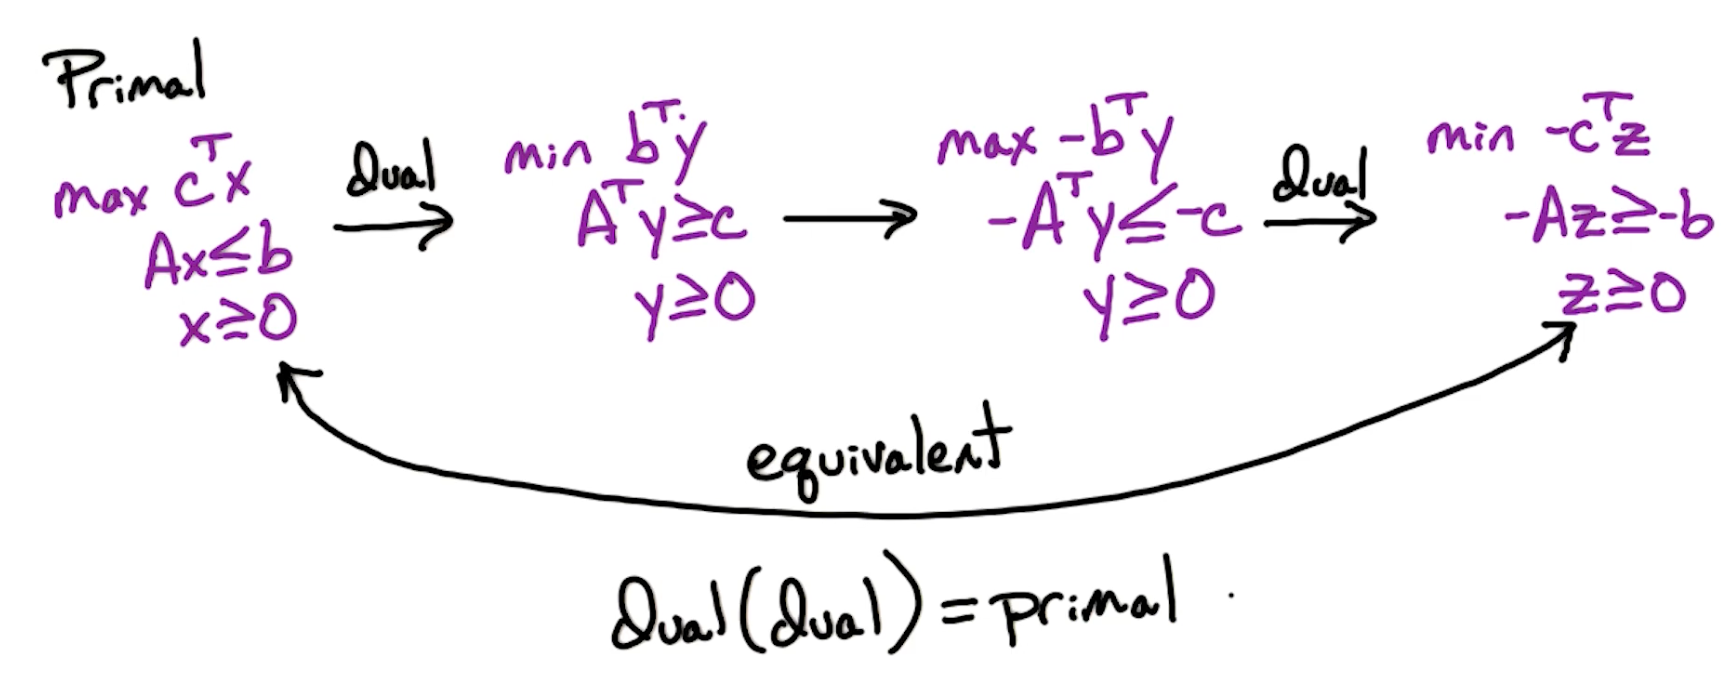 Primal
max cᵀx
Ax≤b
x≥0
dual
min bᵀy
Aᵀy≥c
y≥0
max -bᵀy
-Aᵀy≤-c
y≥0
dual
min -cᵀz
-Az≥-b
z≥0
equivalent
dual(dual)=primal